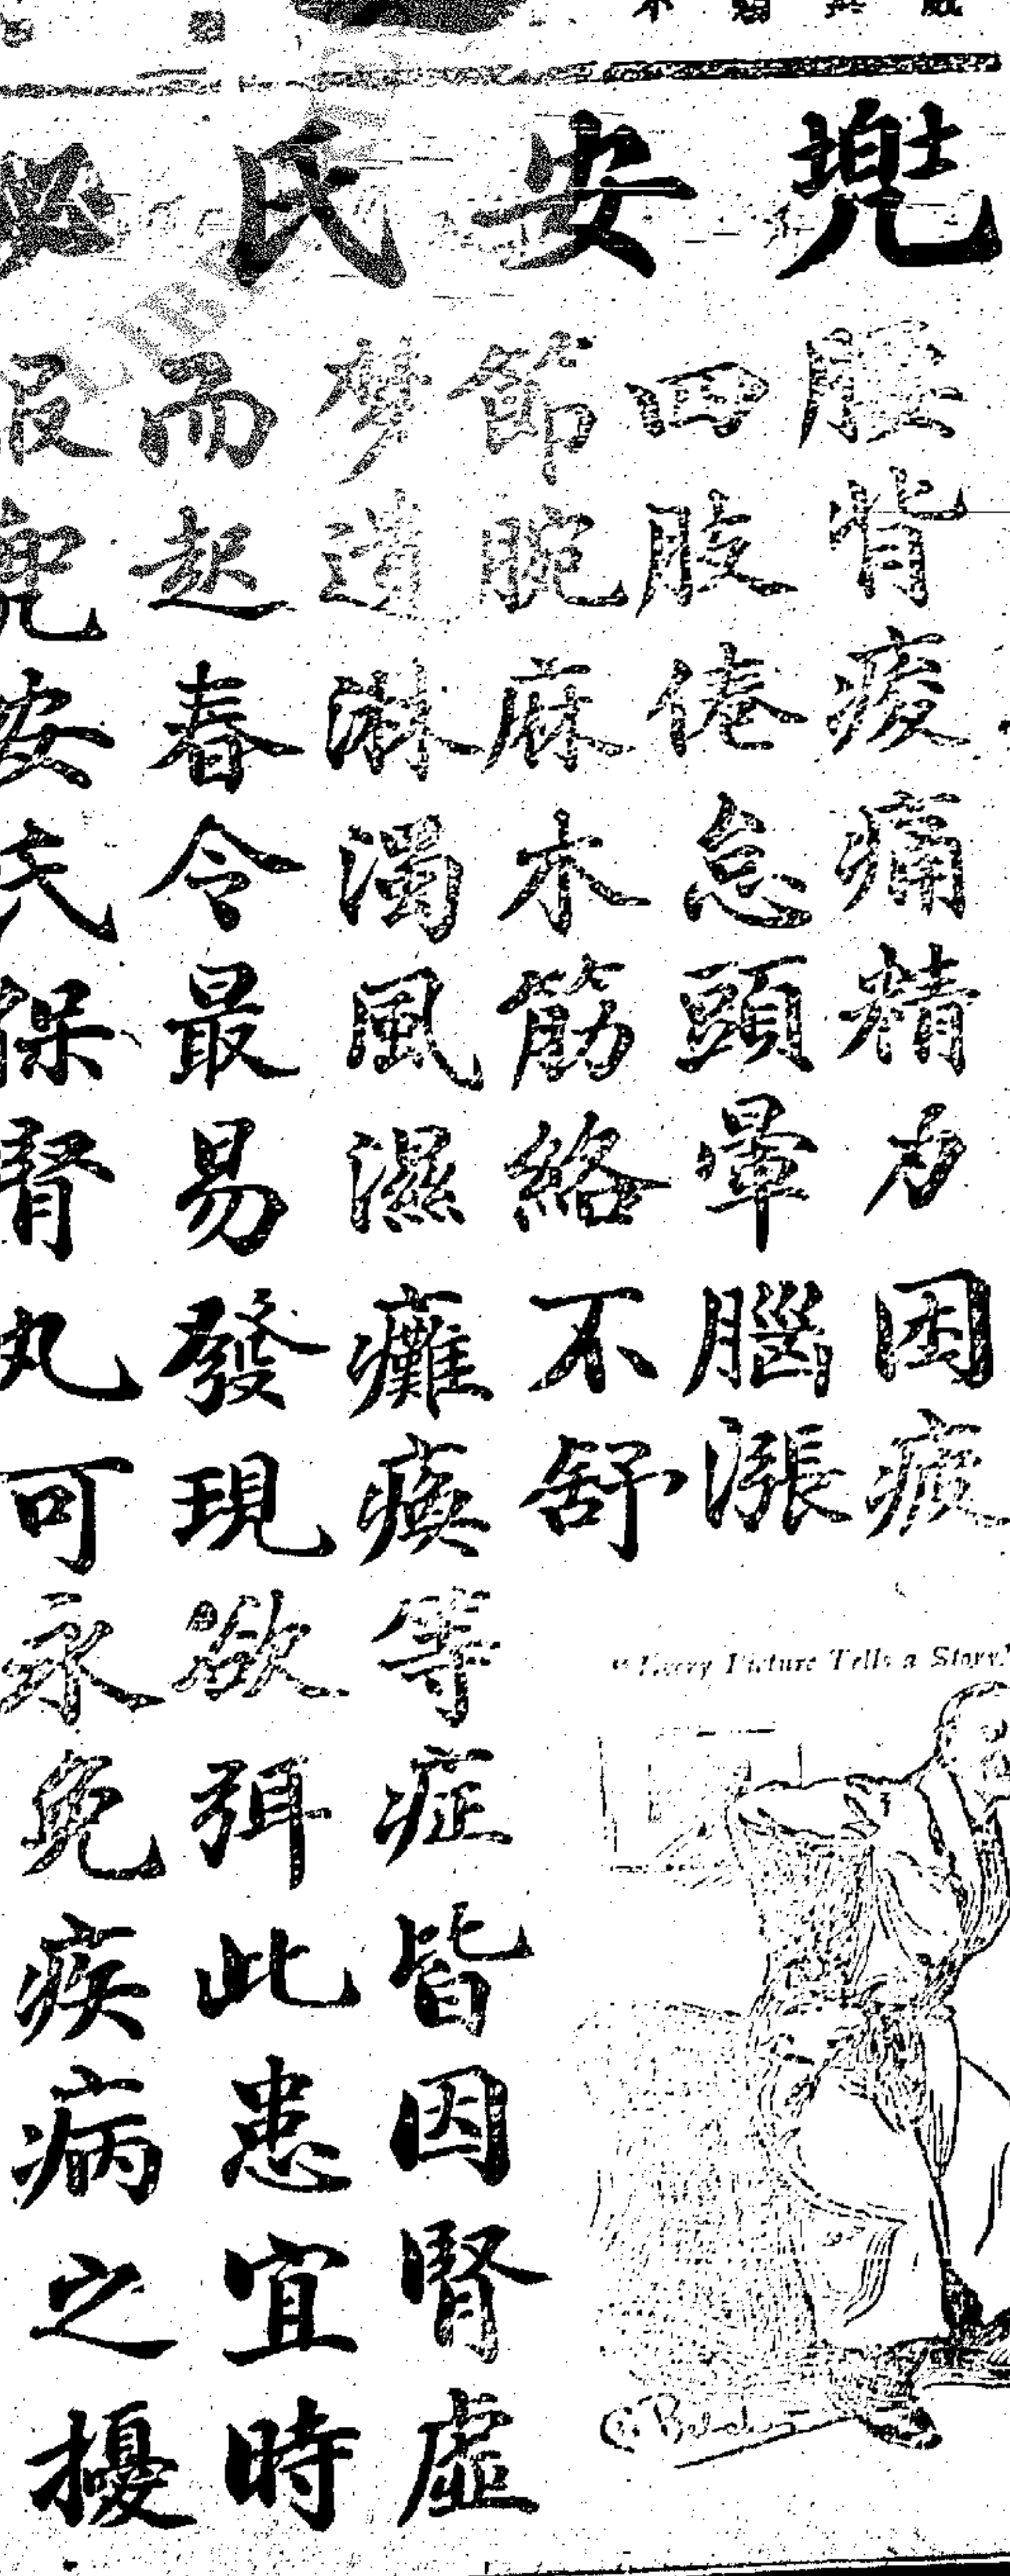 兜安氏
腰背痠痛精力困疲
四肢倦怠頭暈腦漲
節腕麻木筋絡不舒
夢遺淋濁風濕癱瘓等症皆因腎虛
而起春令最易發現欲弭此患宜時
服兜安氏保腎丸可永免疾病之擾
"Every Picture Tells a Story.